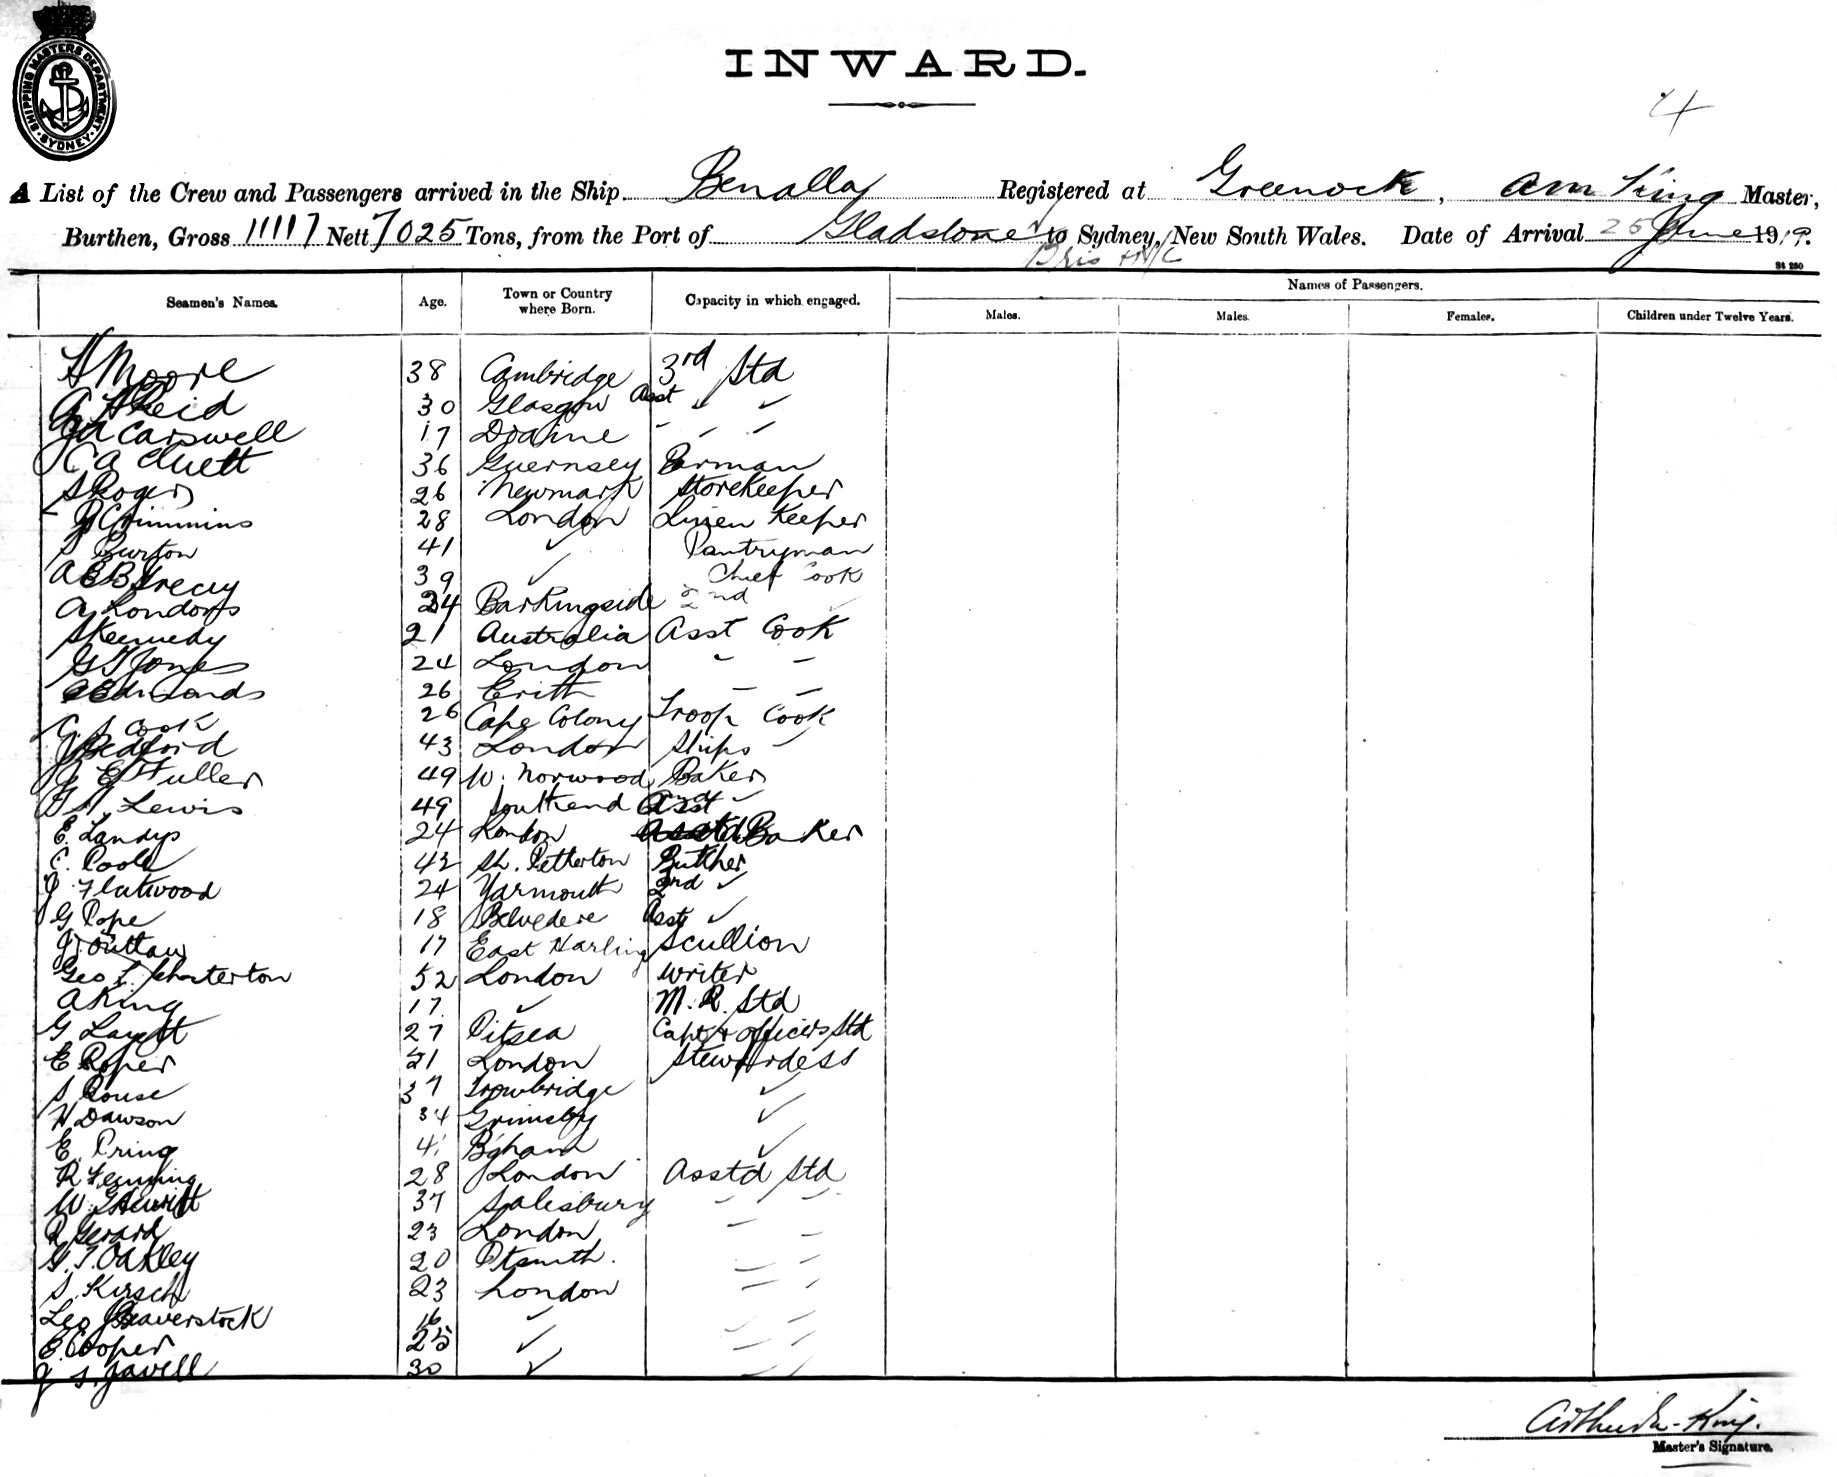 SHIPPING MASTERS DEPARTMENT · SYDNEY ·
INWARD.
4
A List of the Crew and Passengers arrived in the Ship Benalla Registered at Greenock, A M King Master,
Burthen, Gross 11117 Nett 7025 Tons, from the Port of Gladstone to Sydney, New South Wales. Date of Arrival 25 June 1919.
Bris
St 250
Seamen's Names. Age. Town or Country where Born. Capacity in which engaged. Names of Passengers.
Males. Males. Females. Children under Twelve Years.
H Moore 38 Cambridge 3rd Std
A Reid 30 Glasgow Asst ✓ ✓
Carswell 17 - - -
C A Cluett 36 Guernsey Barman
S Roger 26 Newmark Storekeeper
Crimmins 28 London Linen Keeper
S Burton 41 ✓ Pantryman
A E B Grecey 39 ✓ Chief Cook
A Londors 34 Barkingside 2nd ✓
S Kennedy 21 Australia Asst Cook
G T Jones 24 London - -
Edmonds 26 Erith - -
C S Cook 26 Cape Colony Troop Cook
J Bedford 43 London Ships -
J E Fuller 49 W. Norwood Baker
Lewis 49 Southend 2nd ✓
E. Landys 24 London Asst Baker
C. Poole 42 Sh. Petherton Butcher
J Flatwood 24 Yarmouth 2nd ✓
G Pope 18 Belvedere Asst ✓
J. Outlaw 17 East Harling Scullion
Geo L. Chaterton 52 London Writer
A King 17 ✓ M. R. Std
G Layett 27 Pitsea Capt & officers Std
E Roper 21 London Stewardess
S Rouse 37 Trowbridge ✓
H Dawson 34 Grimsby ✓
E. Pring 41 B'gham ✓
R Fenning 28 London Asstd Std
W. Hewitt 37 Salesbury - -
R Gerard 23 London - -
G. T. Oakley 20 Ptsmth. - -
S. Kirsch 23 London - -
Leo Beaverstock 16 ✓ - -
E. Cooper 25 ✓ - -
J S. Javell 30 ✓ - -
Arthur M. King.
Master's Signature.